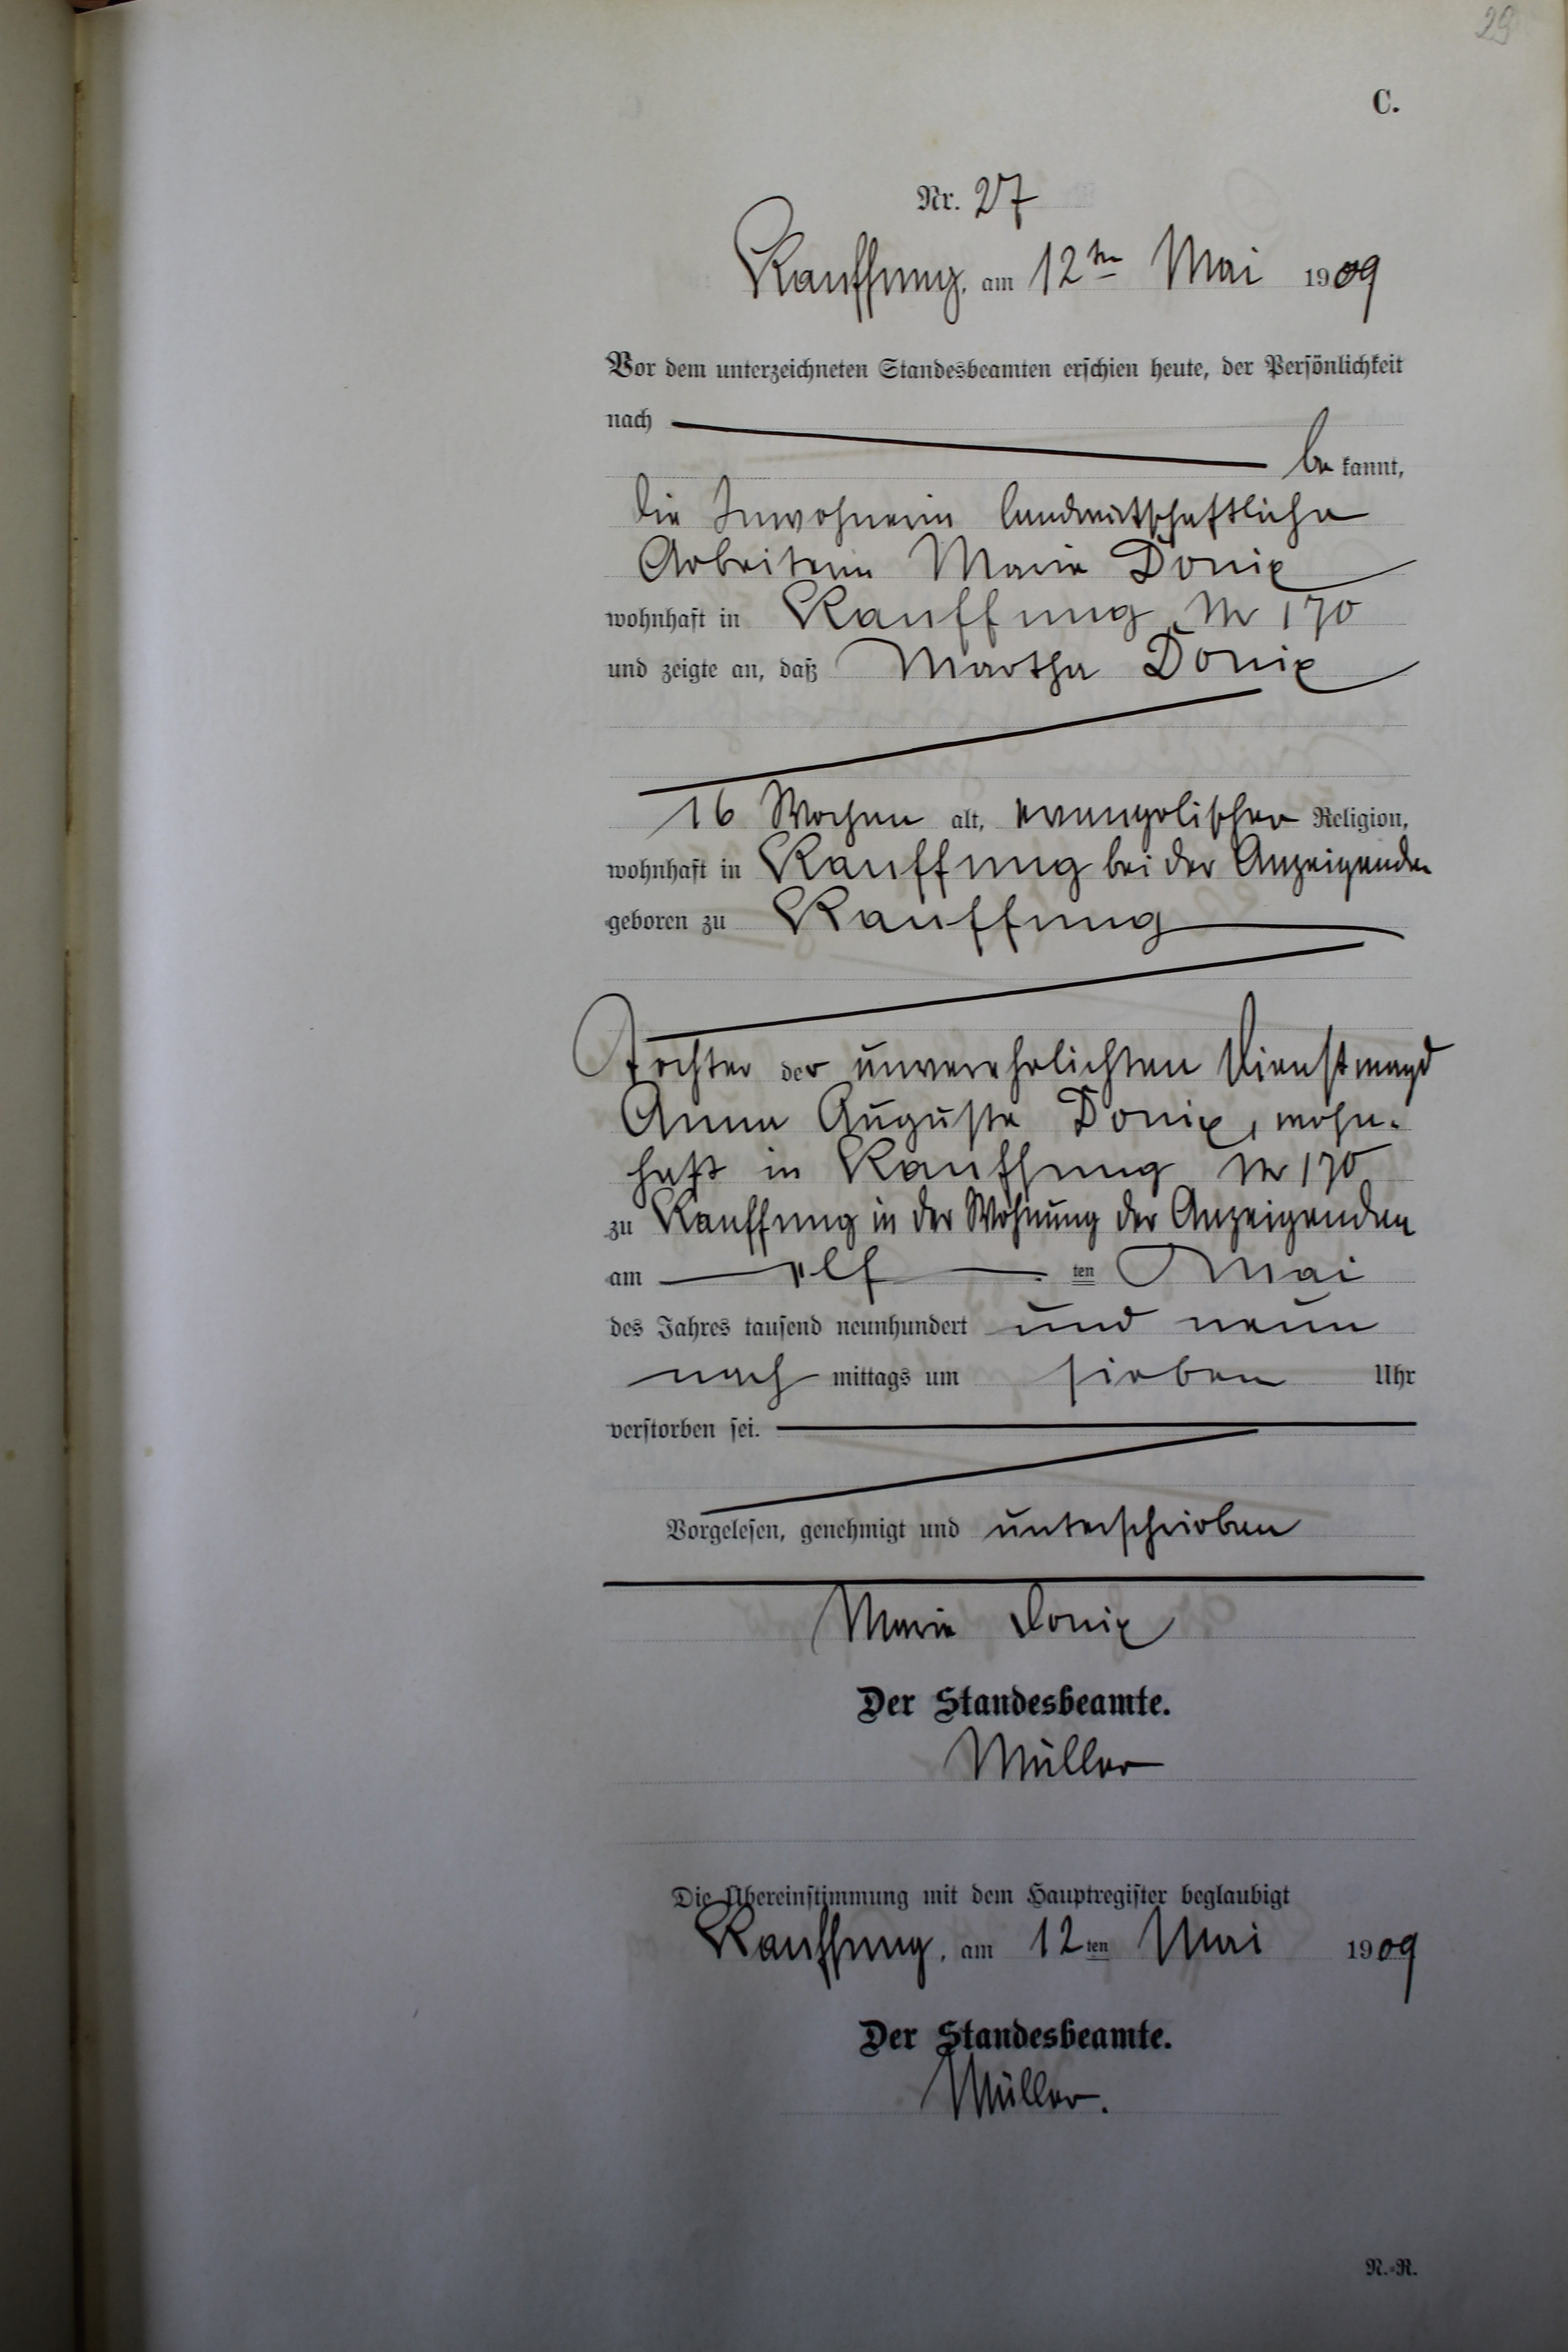 29
C.
Nr. 27
Kauffung, am 12ten Mai 1909
Vor dem unterzeichneten Standesbeamten erschien heute, der Persönlichkeit
nach
be kannt,
die Inwohnerin landwirtschaftliche
Arbeiterin Marie Donix
wohnhaft in Kauffung Nr 170
und zeigte an, daß Martha Donix
16 Wochen alt, evangelischer Religion,
wohnhaft in Kauffung bei der Anzeigenden
geboren zu Kauffung
Tochter der unverehelichten Dienstmagd
Anna Auguste Donix, wohn-
haft in Kauffung Nr 170
zu Kauffung in der Wohnung der Anzeigenden
am elf ten Mai
des Jahres tausend neunhundert und neun
nach mittags um sieben Uhr
verstorben sei.
Vorgelesen, genehmigt und unterschrieben
Marie Donix
Der Standesbeamte.
Müller
Die Übereinstimmung mit dem Hauptregister beglaubigt
Kauffung, am 12ten Mai 1909
Der Standesbeamte.
Müller.
N.-R.